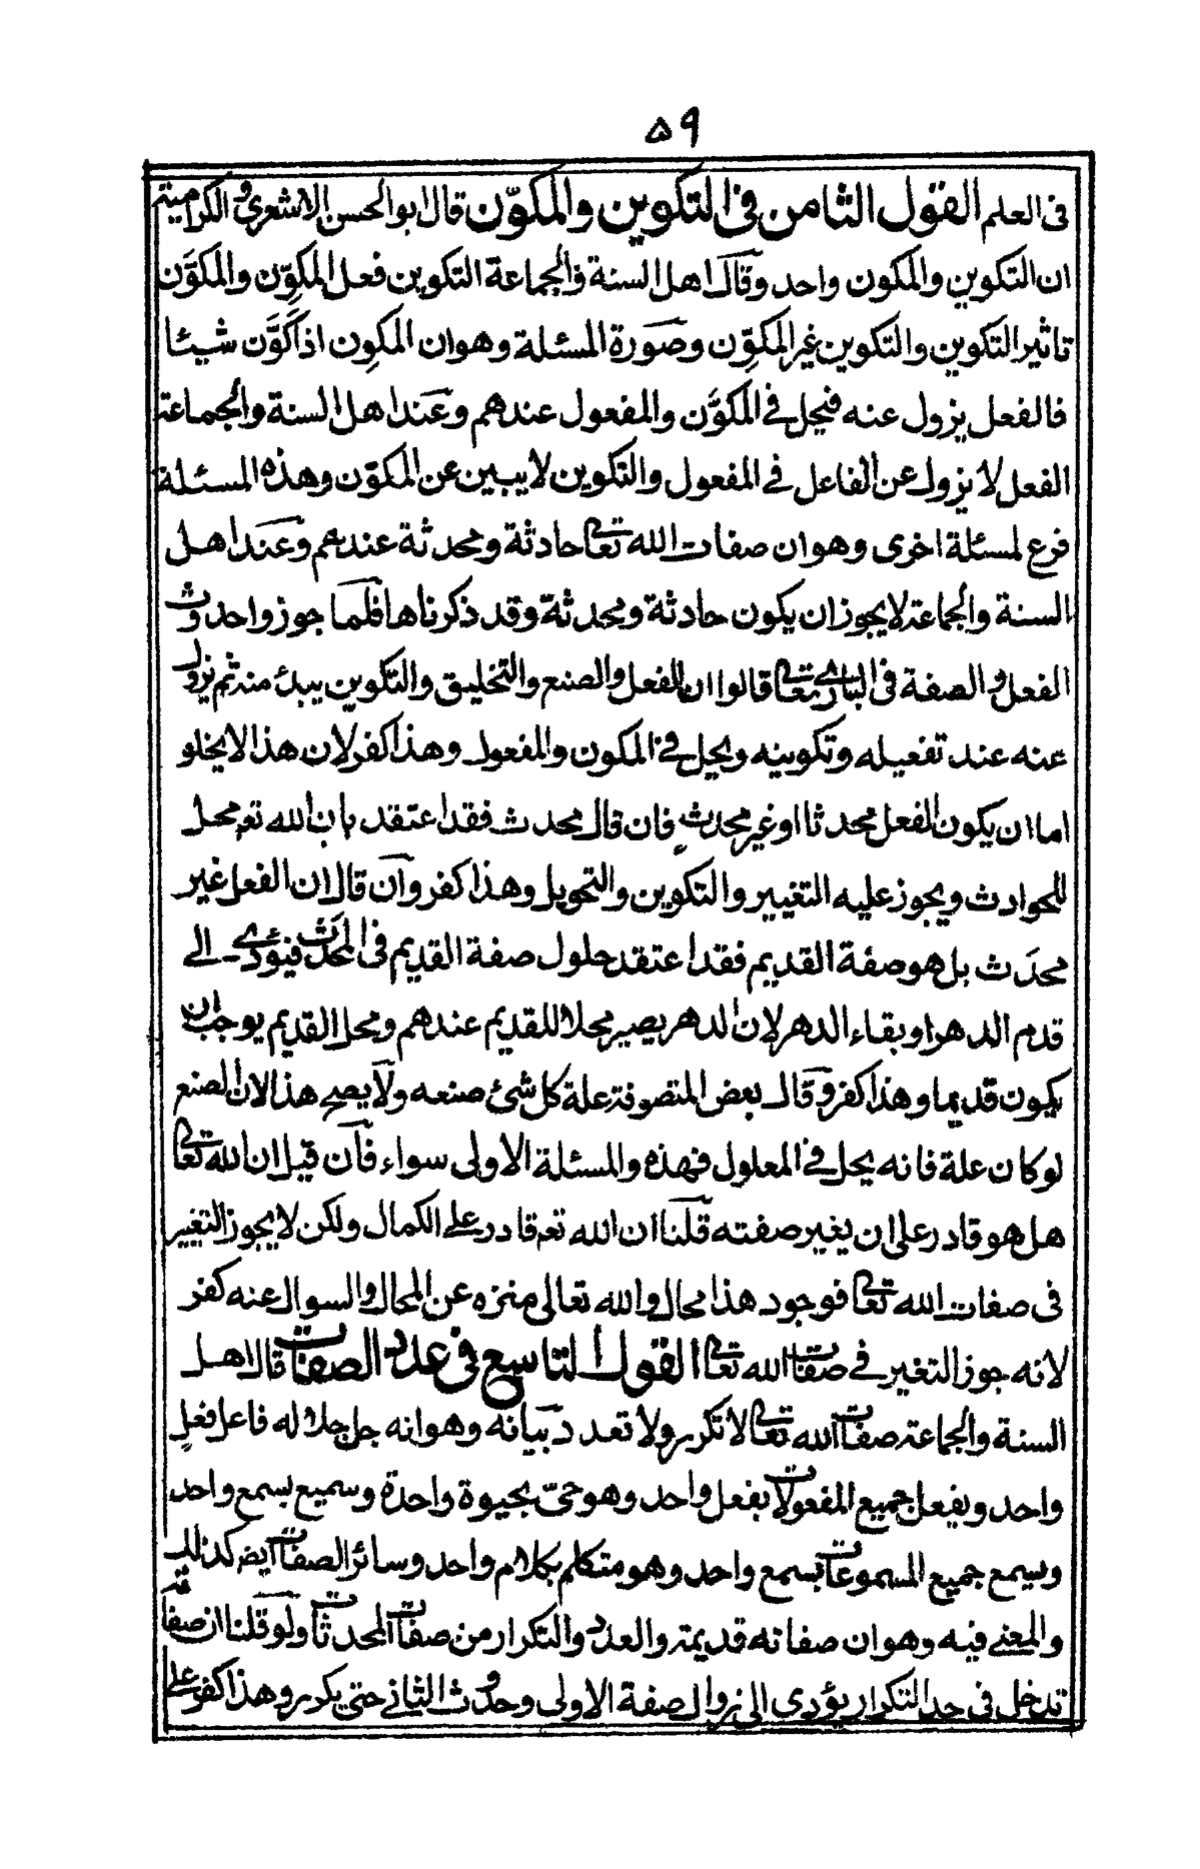 ٥٩
فى العلم القول الثامن فى التكوين والمكوّن قال ابو الحسن الاشعرى والكرامية
ان التكوين والمكون واحد وقال اهل السنة والجماعة التكوين فعل المكوِّن والمكوَّن
تاثير التكوين والتكوين غير المكوِّن وصورة المسئلة وهو ان المكوِن اذا كوَّن شيئا
فالفعل يزول عنه فيحل فے المكوَّن والمفعول عندهم وعند اهل السنة والجماعة
الفعل لا يزول عن الفاعل فے المفعول والتكوين لا يبين عن المكوّن وهذه المسئلة
فرع لمسئلة اخرى وهو ان صفات الله تعالى حادثة ومحدثة عندهم وعند اهل
السنة والجماعة لا يجوز ان يكون حادثة ومحدثة وقد ذكرناها فلما جوز واحدوث
الفعل والصفة فى البارى تعالى قالوا ان الفعل والصنع والتخليق والتكوين يبدئ منه ثم يزول
عنه عند تفعيله وتكوينه ويحل فے المكون والمفعول وهذا كفر لان هذا لا يخلو
اما ان يكون الفعل محدثا او غير محدث فان قال محدث فقد اعتقد بان الله تعہ محل
للحوادث ويجوز عليه التغيير والتكوين والتحويل وهذا كفر وان قال ان الفعل غير
محدَث بل هو صفة القديم فقد اعتقد حلول صفة القديم فى المحدَث فيؤدے الے
قدم الدهر او بقاء الدهر لان الدهر يصير محلا للقديم عندهم ومحل القديم يوجب ان
يكون قديما وهذا كفر وقال بعض المتصوفة علة كل شئ صنعه ولا يصح هذا لان الصنع
لو كان علة فانه يحل فے المعلول فهذه والمسئلة الاولى سواء فان قيل ان الله تعالى
هل هو قادر على ان يغير صفته قلنا ان الله تعہ قادر علے الكمال ولكن لا يجوز التغيير
فى صفات الله تعالى فوجود هذا محال والله تعالى منزه عن المحال والسوال عنه كفر
لانه جوز التغير فے صفات الله تعالى القول التاسع فى عدد الصفات قال اهل
السنة والجماعة صفات الله تعالى لا تكرر ولا تعدد بيانه وهو انه جل جلاله فاعل فعلٍ
واحد ويفعل جميع المفعولات بفعل واحد وهو حىّ بحيوة واحدة وسميع بسمع واحد
ويسمع جميع المسموعات بسمع واحد وهو متكلم بكلام واحد وسائر الصفات ايضہ كذلك
والمعنے فيه وهو ان صفاته قديمة والعدد والتكرار من صفات المحدثات ولو قلنا ان صفاته
تدخل فى حد التكرار يؤدى الى زوال صفة الاولى وحدوث الثانے حتى يكرر وهذا كفر علے